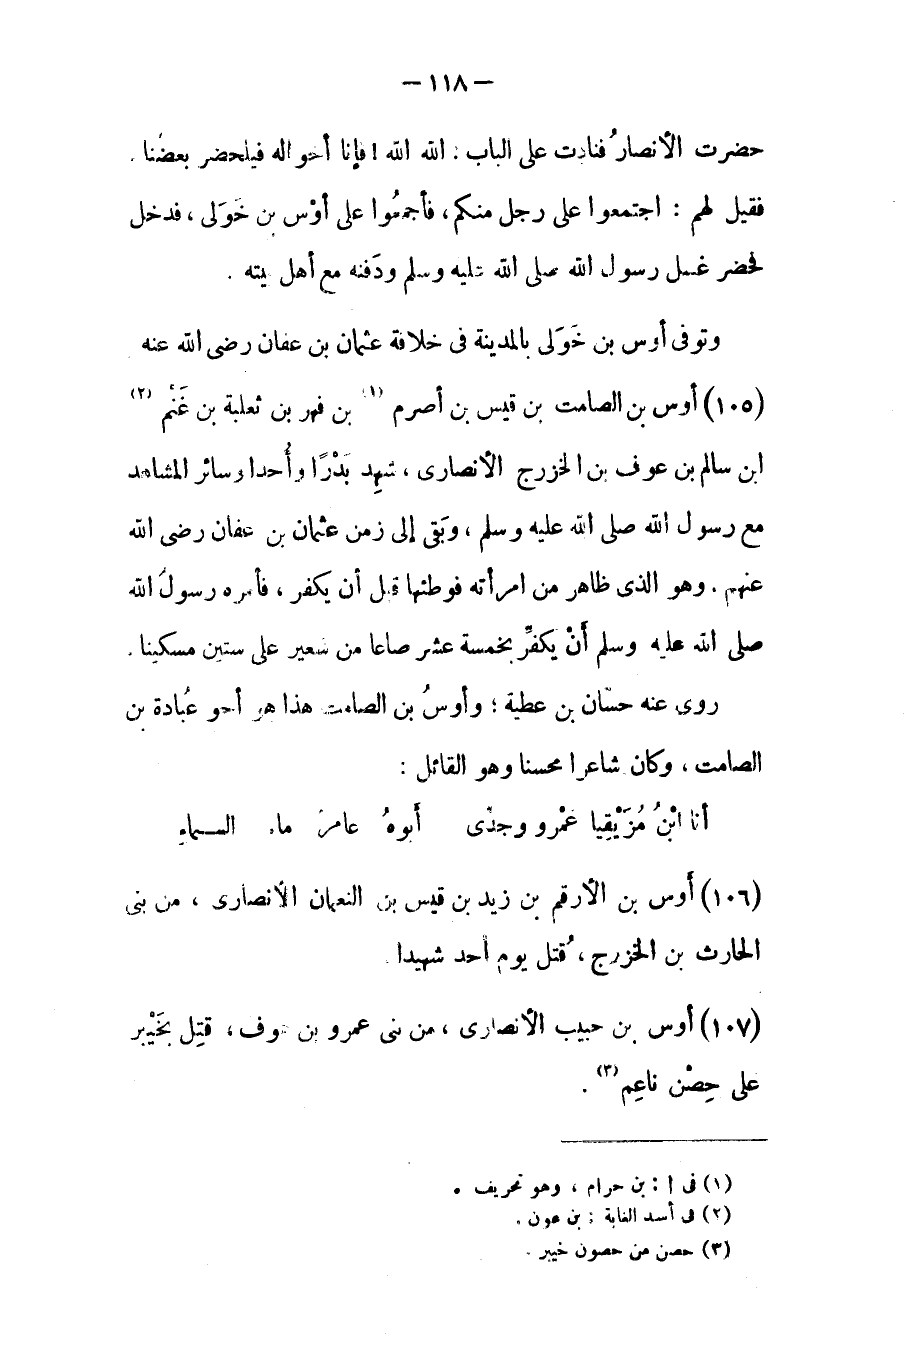 — ١١٨ —
حضرت الأنصارُ فنادت على الباب : الله الله ! فإنا أخواله فيلحضر بعضُنا .
فقيل لهم : اجتمعوا على رجل منكم ، فأجمعُوا على أوْس بن خَوَلى ، فدخل
فحضر غسل رسول الله صلى الله عليه وسلم ودَفنه مع أهل بيته .
وتوفى أوس بن خَوَلى بالمدينة فى خلافة عثمان بن عفان رضى الله عنه
(١٠٥) أوس بن الصامت بن قيس بن أصرم (١) بن فهر بن ثعلبة بن غَنْم (٢)
ابن سالم بن عوف بن الخزرج الأنصارى ، شهِد بَدْرًا وأُحدا وسائر المشاهد
مع رسول الله صلى الله عليه وسلم ، وبَقى إلى زمن عثمان بن عفان رضى الله
عنهم . وهو الذى ظاهر من امرأته فوطئها قبل أن يكفر ، فأمره رسولُ الله
صلى الله عليه وسلم أَنْ يكفِّر بخمسة عشر صاعا من شعير على ستين مسكينا .
روى عنه حسّان بن عطية ؛ وأوسُ بن الصامت هذا هو أخو عُبادة بن
الصامت ، وكان شاعرا محسنا وهو القائل :
أنا ابْنُ مُزَيْقِيا عَمْرو وجدّى أَبوهُ عامرٌ ماء السماءِ
(١٠٦) أَوس بن الأرقم بن زيد بن قيس بن النعمان الأنصارى ، من بنى
الحارث بن الخزرج ، قُتل يوم أحد شهيدا .
(١٠٧) أوس بن حبيب الأنصارى ، من بنى عمرو بن عوف ، قتِل بخَيْبر
على حِصْن ناعِم (٣) .
(١) فى أ : بن حرام ، وهو تحريف .
(٢) فى أسد الغابة : بن عون .
(٣) حصن من حصون خيبر .